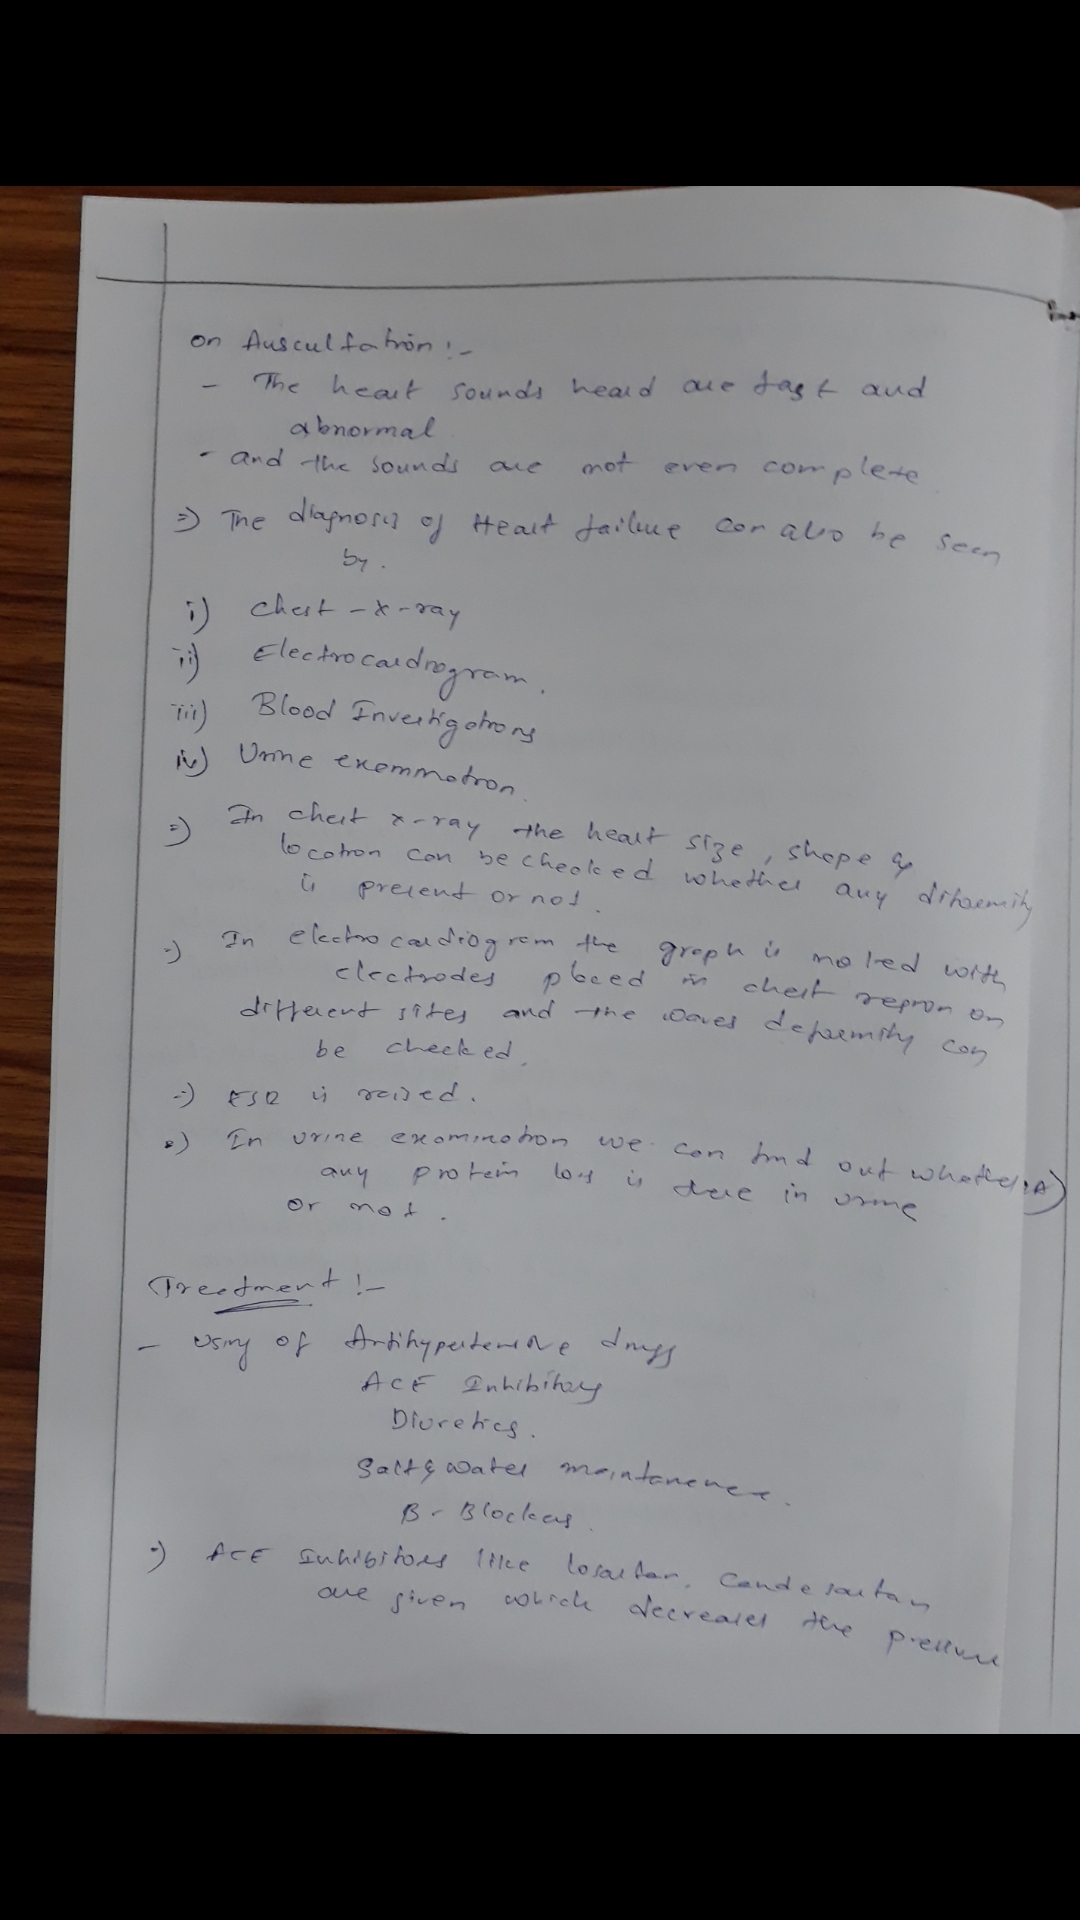 on Auscultation:-
- The heart sounds heard are fast and
abnormal
- and the sounds are not even complete
=> The diagnosis of Heart failure can also be seen
by.
i) chest-x-ray
ii) Electrocardiogram.
iii) Blood Investigations
iv) Urine examination.
=> In chest x-ray the heart size, shape &
location can be checked whether any diformity
is present or not.
=> In electrocardiogram the graph is noted with
electrodes placed in chest region on
different sites and the waves deformity can
be checked.
=> ESR is raised.
=> In urine examination we can find out whether
any protein loss is there in urine
or not.
Treatment:-
- Using of Antihypertensive drugs
ACE Inhibitors
Diuretics.
Salt & Water maintanence.
B-Blockers.
=> ACE Inhibitors like losartan, Candesartan
are given which decreases the pressure